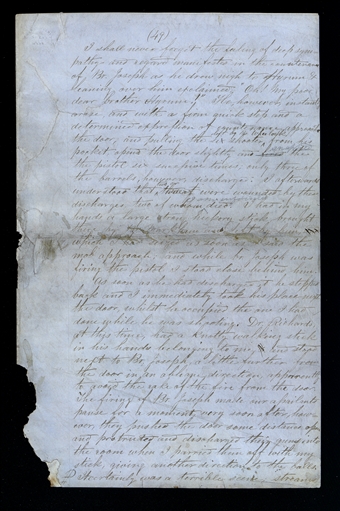 (49)
I shall never forget the feeling of deep sym-
pathy and regard manifested in the countenance
of Br. Joseph as he drew nigh to Hyrum &
leaning over him exclaimed, "Oh! my poor
dear brother Hyrum." He, however, instantly
arose, and with a firm quick step and a
determined expression of countenance, approached
the door, and pulling the six shooter from his
pocket opened the door slightly and snapped
the pistol six successive times, only three of
the barrels, however, discharged. I afterwards
understood that two or three were wounded by these
discharges, two of whom died. I had in my
hands a large strong hickory stick, brought
there by
which I had as soon as I saw the
mob approach, and while Br. Joseph was
firing the pistol, I stood close behind him.
As soon as he had discharged it he stepped
back and I immediately took his place next
the door, whilst he occupied the one I had
done while he was shooting. Dr. Richards,
at this time, had a knotty walking stick
in his hands and stood
next to Br. Joseph, a little from
the door in an oblique direction, apparently
to avoid the rake of the fire from the door.
The firing of Br. Joseph made our assailants
pause for a moment; very soon after, how-
ever, they pushed the door some distance open
and protruded and discharged their guns into
the room when I parried them off with my
stick, giving another direction to the balls.
It certainly was a terrible scene: streams